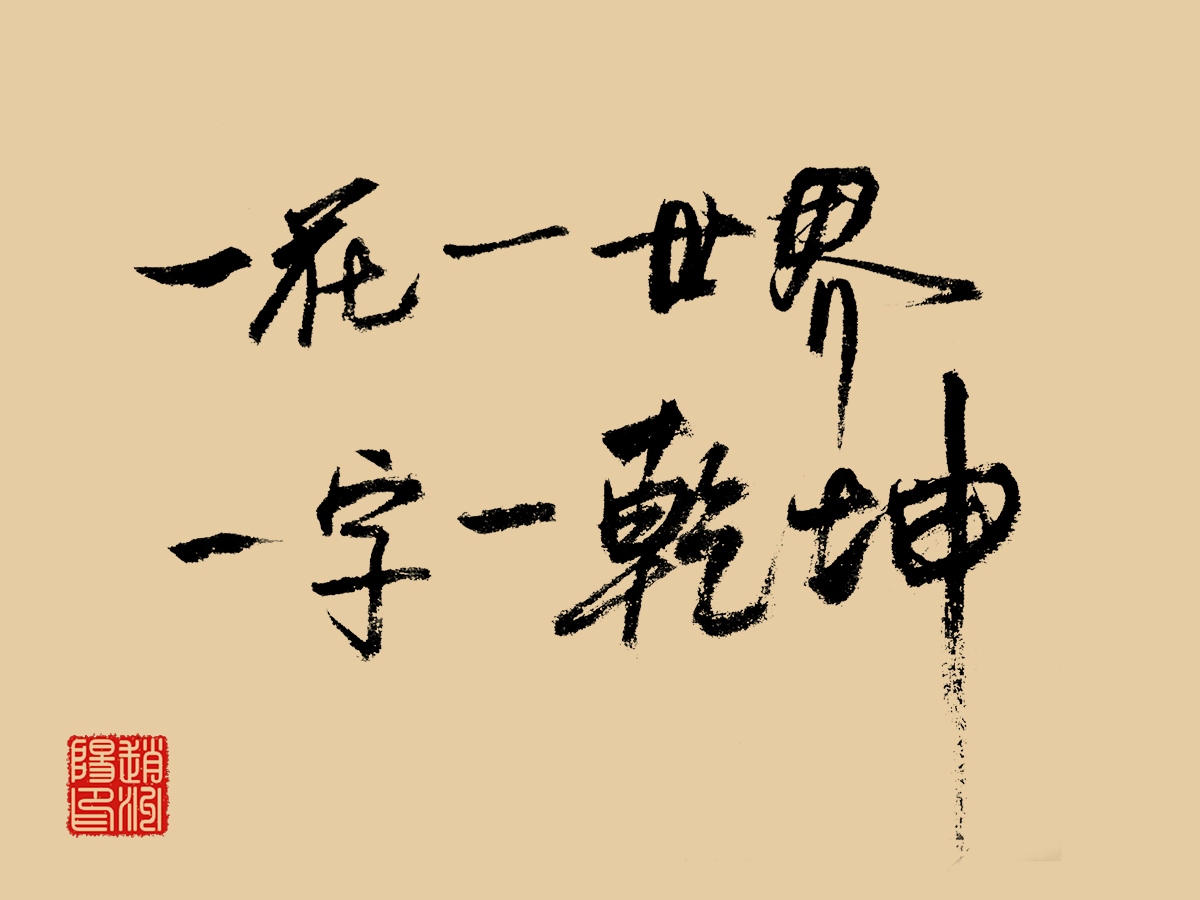 一花一世界
一字一乾坤